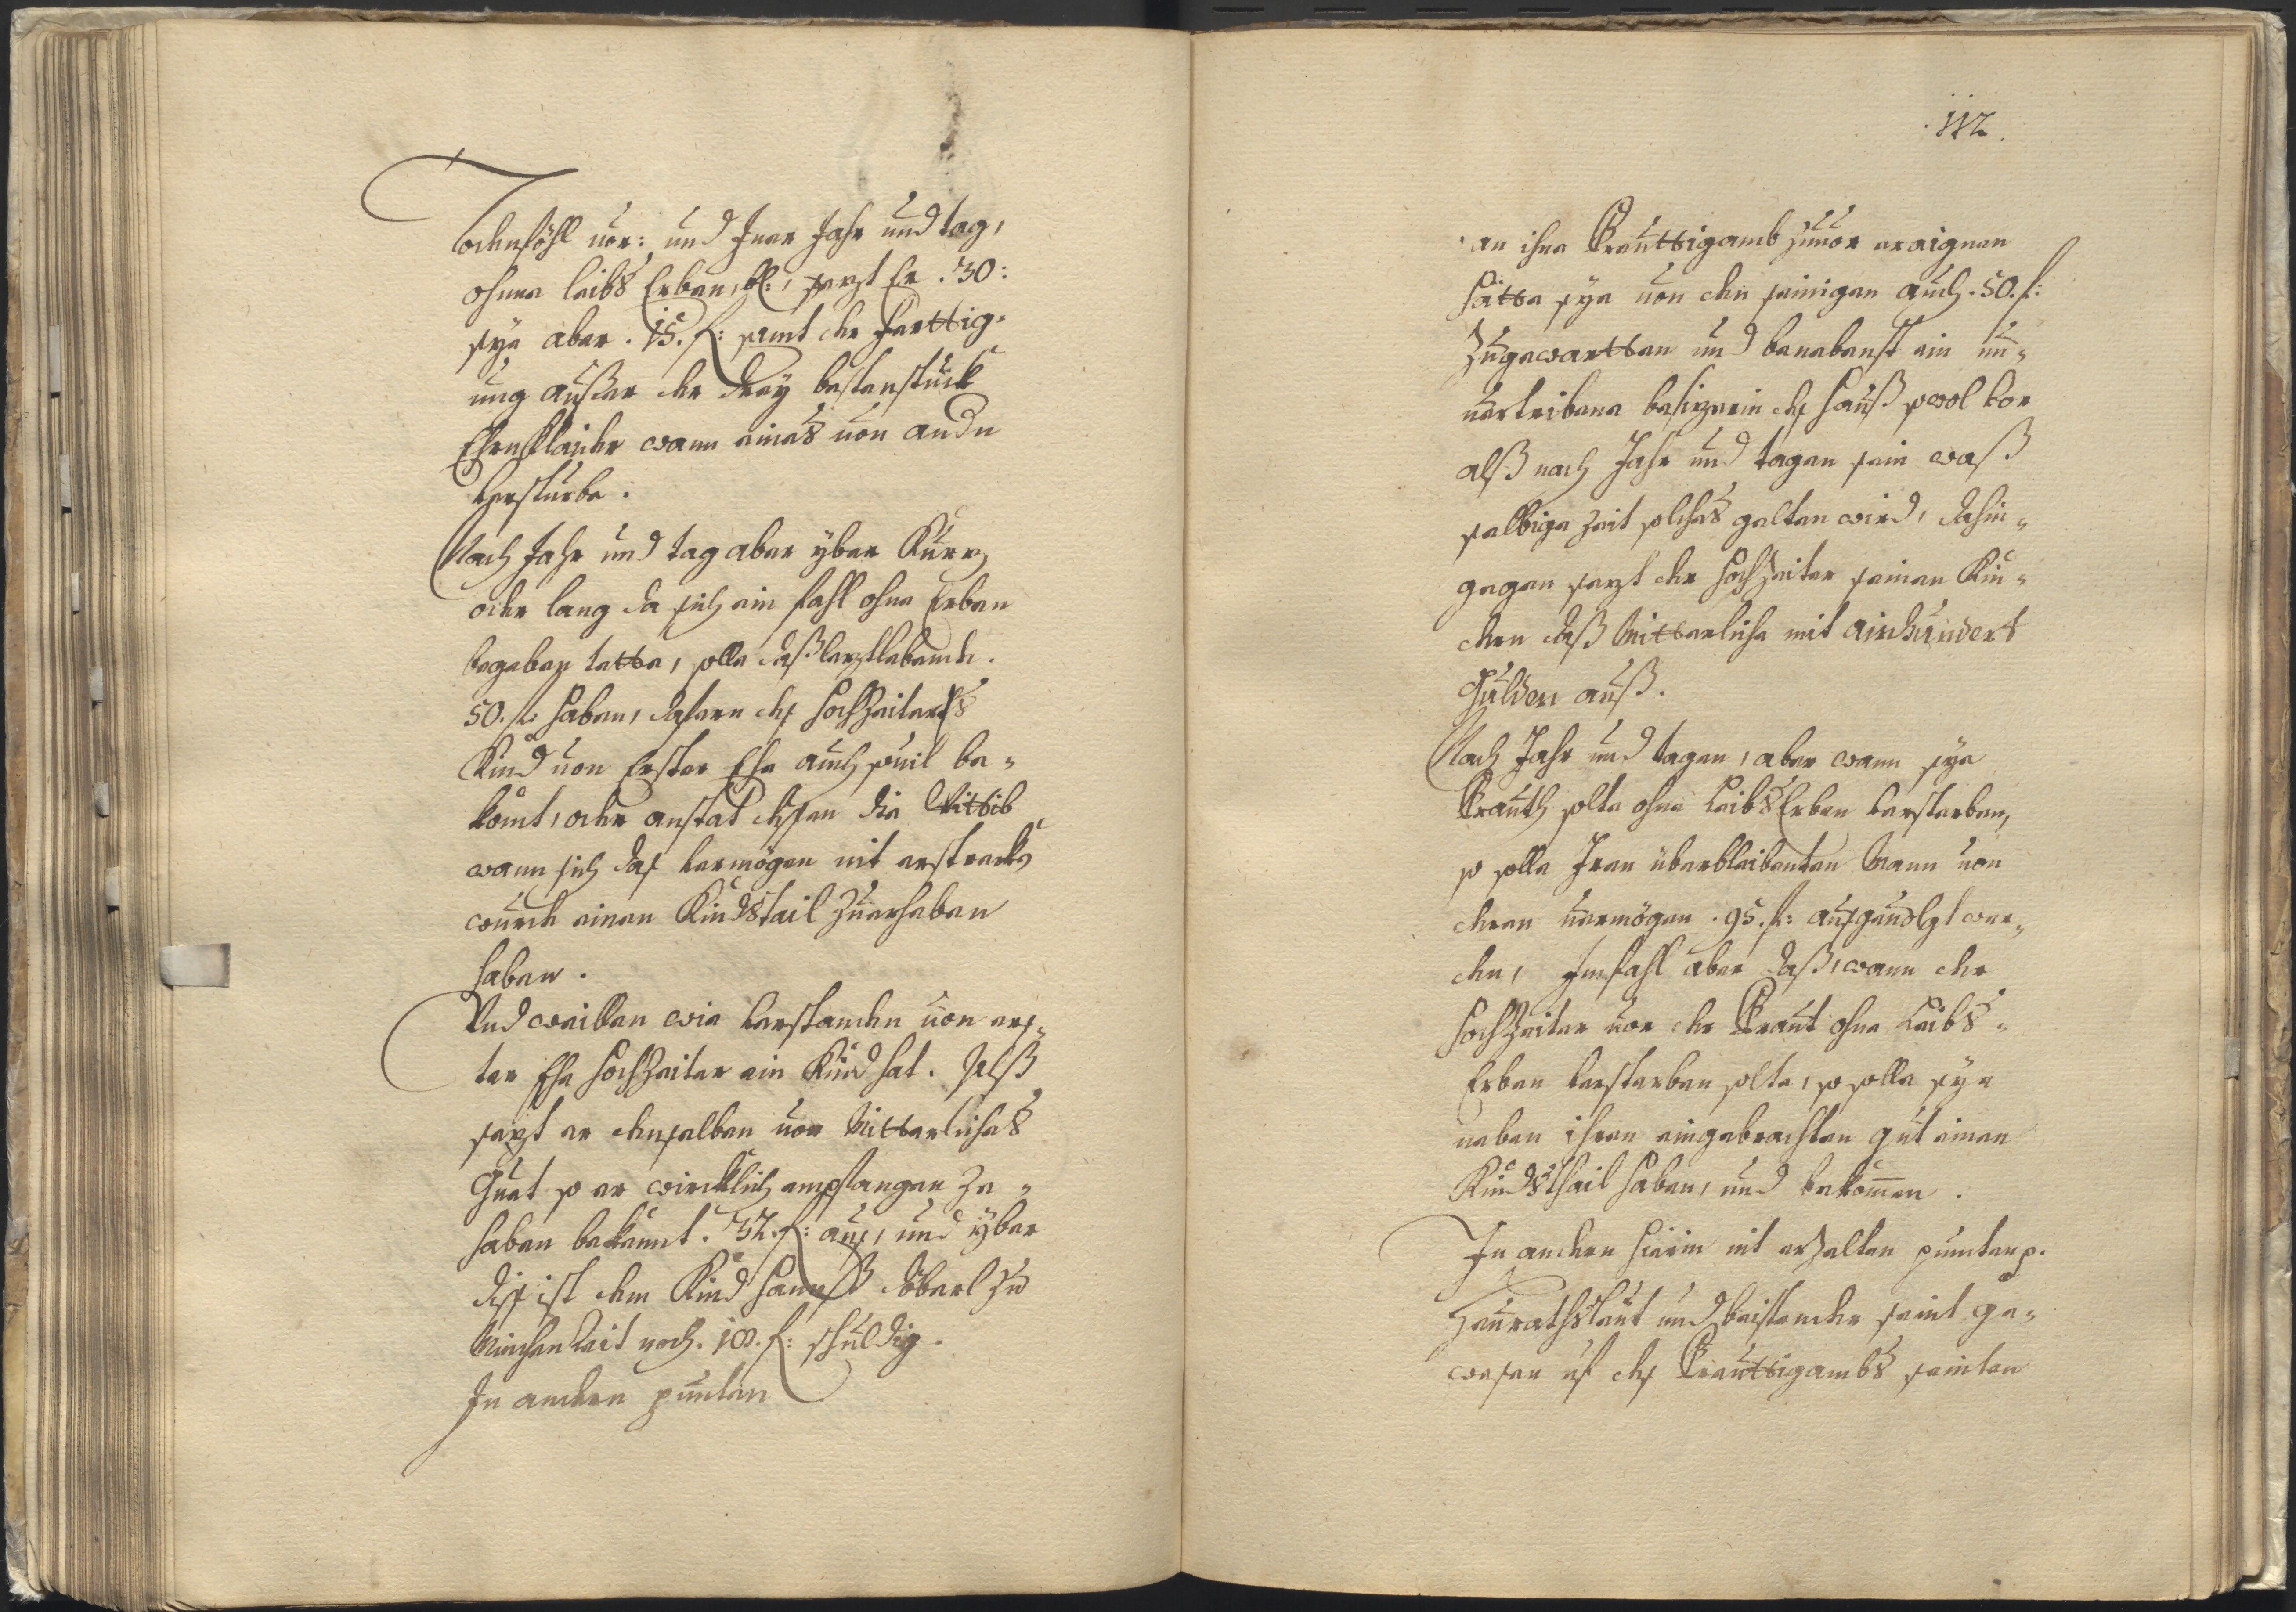 Todensföhl vor: und Inner Jahr und tag,
ohnne leibs Erben, sezt Er . 30:
sye aber . 15. f: samt der fertttig-
ung ausser der drey bestenstuck
Ehrnklaider wann aines von andn
versturbe .
Nach Jahr und tag aber yber Kurz
oder lang da sich ein fahl ohne Erben
begeben tette, solle dass leztlebende .
50. f: haben, dafern dess Hochzeiters
Kind von Erster Ehe auch souil be-
komt, oder anstat dessen die Wittib
wann sich das vermögen nit erstreckh
wurde einen Kindstail zuerheben
haben .
Und weillen wie verstanden von ers-
ter Ehe Hochzeiter ein Kind hat . Alss
sezt er demselben vor Mitterliches
Guet so er wircklich empfangen ze-
haben bekennt . 32. f: aus, und yber
diss ist dem Kind Hannss Böberl zu
noch . 100. f: schuldig .
In andern puncten
112
an ihne Preuttigamb zuuor eraignen
hätte sye von den seinigen auch . 50. f:
zugewartten und benebenst ein un-
uertribene besizerin des Hauss sowol vor
alss nach Jahr und tagen sein wass
selbige zeit solches gelten wird, dahin-
gegen sezt der Hochzeiter seinen Kin-
dern dass Mitterliche mit ainhundert
Gulden auss .
Nach Jahr und tagen, aber wann sye
Brauth solte ohne LeibsErben versterben,
so solle Iren überbleibenten Mann von
deren vermögen . 95. f: aussgeuolgt wer-
den, Imfahl aber dass, wann der
Hochzeiter vor der Braut ohne Leibs-
Erben versterben solte, so solle sye
neben ihren eingebrachten gut einen
Kindsthail haben, und bekommen .
In andern hierin nit erzelten puncten p.
Heurathsleut und beistender seint ge-
wesen uf dess Breuttigambs seinten